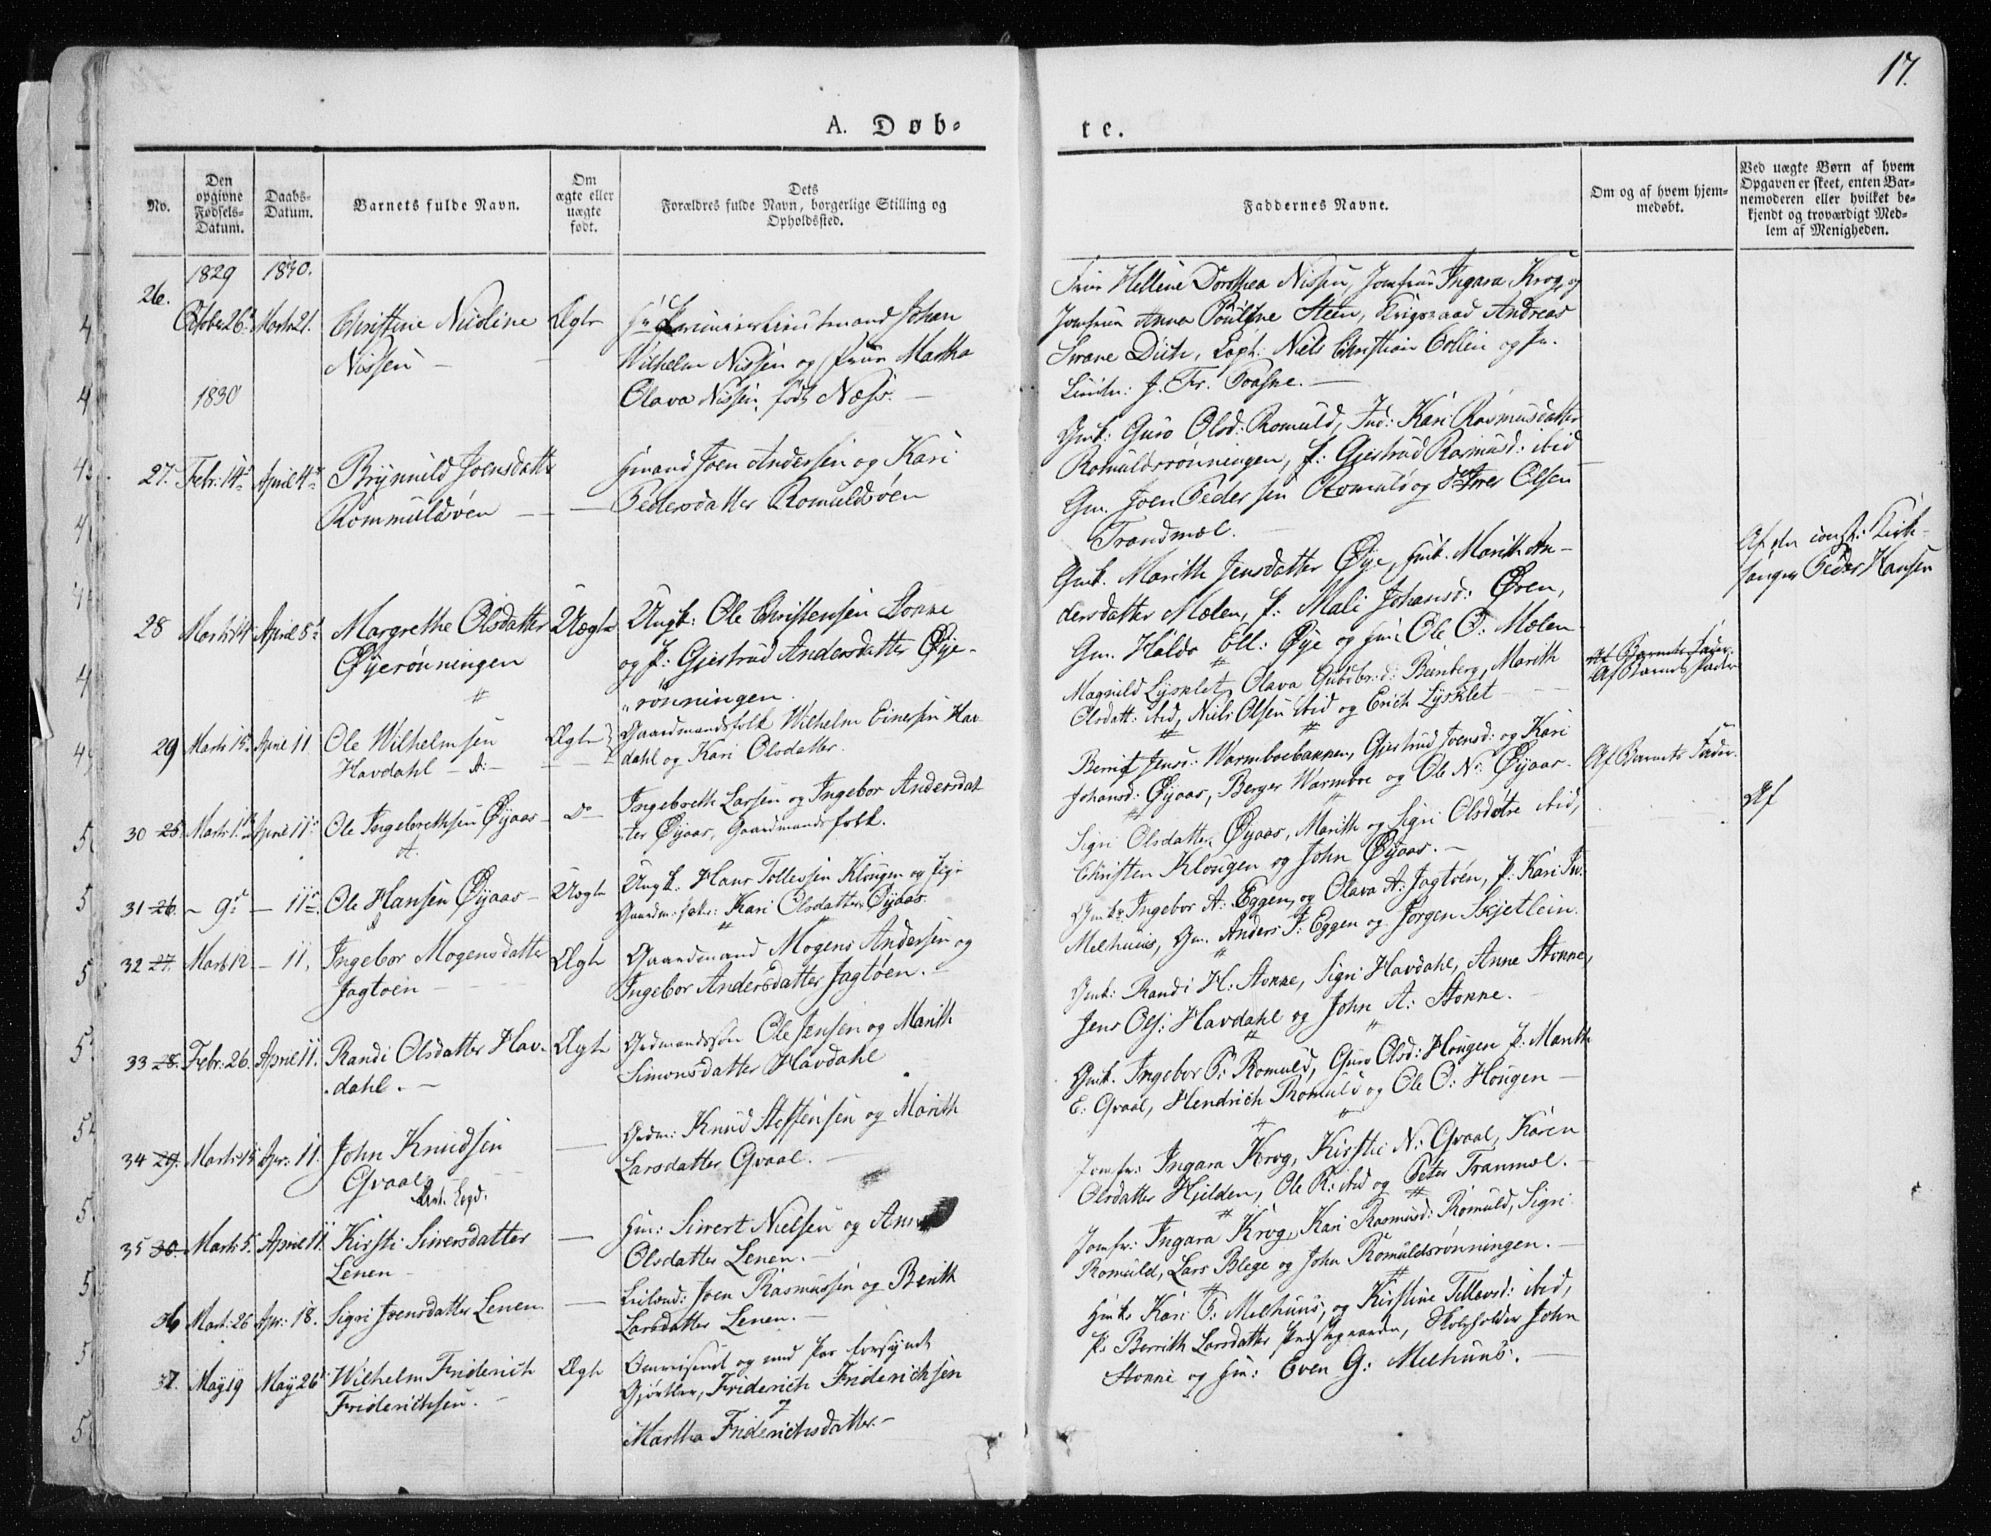 17.
A. Døb-
te.
No.
Den opgivne Fødsels-Datum.
Daabs-Datum.
Barnets fulde Navn.
Om ægte eller uægte født.
Dets Forældres fulde Navn, borgerlige Stilling og Opholdssted.
Faddernes Navne.
Om og af hvem hjem-
medøbt.
Ved uægte Børn af hvem
Opgaven er skeet, enten Bar-
nemoderen eller hvilket be-
kjendt og troværdigt Med-
lem af Menigheden.
1829 1830.
26.
October 26 Marts 21. Christine Nicoline Ægte
Nissen
Premierlieutnand Johan
Wilhelm Nissen og Frue Martha
Olava Nissen, født Næss.
Frue Hellene Dorothea Nissen, Jomfrue Ingara Krog og
Jomfrue Anna Pouline Steen, Krigsraad Andreas
Capt: Niels Christian Collin og
1830
27. Febr: 14 April 4 Brynnild Joensdatter
Rommuldsøen
Joen Andersen og Kari
Pedersdatter Romuldsøen
Gmk: Guro Olsd: Romuld, Ind: Kari Rasmusdatter
Romuldsrønningen, P: Gjertrud Rasmusd: ibid
Gm. Joen Pedersen Romuld og Iver Olsen
Tranmæl.
28 Marts 14 April 8 Margrethe Olsdatter Uægte
Øyerønningen
Ungk: Ole Christensen Lonne
og P: Gjertrud Andersdatter Øye-
rønningen.
Gmk. Marith Jensdatter Øye, Gmk. Marith An-
dersdatter Mælen, P: Mali Johansd: Øren,
Gm. Haldo Ell: Øye og Ole O: Mælen
Af den const: Kirke-
sanger Peder Hansen
29 Marts 15. April 11. Ole Wilhelmsen Ægte
Havdahl
Gaardmandsfolk Wilhelm Einersen Hav-
dahl og Kari Olsdatter.
Magnild Lysklet, Olava Gulbr:d: Bunberg, Marith
Olsdatt: ibid, Niels Olsen ibid og Erich Lysklet
Af Barnets Fader
Af Barnets Fader
30 25. Marts April 11 Ole Ingebrethsen Øyaas do
Ingebreth Larsen og Ingebor Andersdat-
ter Øyaas, Gaardmandsfolk.
Berrit Jensd: Warmboebakken, Gjertrud Joensd: og Kari
Johansd: Øyaas, Berger Warmboe og Ole N: Øyaas.
Af Barnets Fader.
Af
31 26. 9 11 Ole Hansen Øyaas Uægte
Ungk: Hans Tollefsen Klougen og Pige
Kari Olsdatter Øyaas.
Sigri Olsdatter Øyaas, Marith og Sigri Olsdøtre ibid,
Christen Klougen og John Øyaas.
32 27. Marts 12 11. Ingebor Mogensdatter Ægte
Jagtøen
Gaardmand Mogens Andersen og
Ingebor Andersdatter Jagtøen.
Gmk: Ingebor A: Eggen, og Olava A: Jagtøen, P: Kari
Melhuus, Gm. Anders J: Eggen og Jørgen Skjetlein.
33 28. Febr: 26. April 11. Randi Olsdatter Hav- Ægte
dahl.
Grdmandssøn Ole Jensen og Marith
Simonsdatter Havdahl
Gmk: Randi H: Stonne, Sigri Havdahl, Anne Stonne,
Jens Ols: Havdahl og John A: Stonne.
34 29. Marts 15 Apr: 11. John Knudsen
Gvaal
Grdm: Knud Steffensen og Marith
Larsdatter Gvaal.
Gmk. Ingebor P: Romuld, Guro Olsd: Hougen P: Marith
E: Gvaal, Hendrich Romuld og Ole O: Hougen
35 30. Marts 5. April 11 Kirsti Siversdatter
Lenen
Hm: Siwert Nielsen og Anne
Olsdatter Lenen.
Jomfr: Ingara Krog, Kirstie N: Gvaal, Karen
Olsdatter Hjilden, Ole R: ibid og Peter Tranmæl.
36 Mart: 26 Apr: 18. Sigri Joensdatter Lenen
Leilænd: Joen Rasmussen og Berith
Larsdatter Lenen.
Jomfr: Ingara Krog, Kari Rasmusd: Romuld, Sigri
Romuld, Lars Blege og John Romuldsrønningen.
37. May 19 May 26 Wilhelm Friderich Ægte
Friderichsen.
Omreisende og med Pas forsynet
Gjørtler, Friderich Friderichsen
Martha Friderichsdatter.
Kari P: Melhuus, og Kirstine Tillevsd: ibid,
P: Berrith Larsdatter Præstegaarden, Skoleholder John
Stonne og Even G: Melhuus.